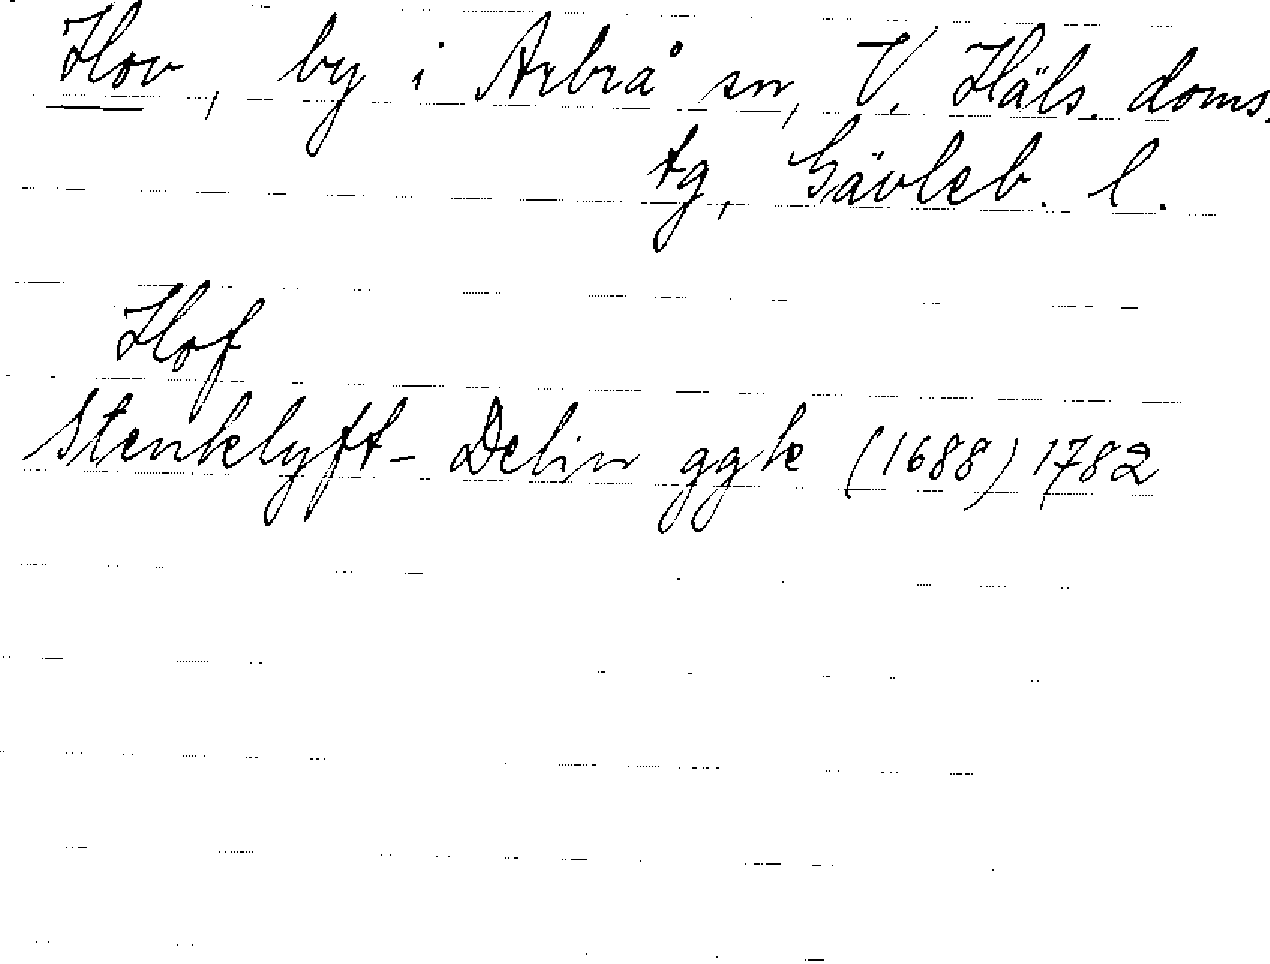 Hov, by i Arbrå sn, V. Häls. doms.
tg, Gävleb. l.
Hof
Stenklyft- Delin ggk (1688) 1782